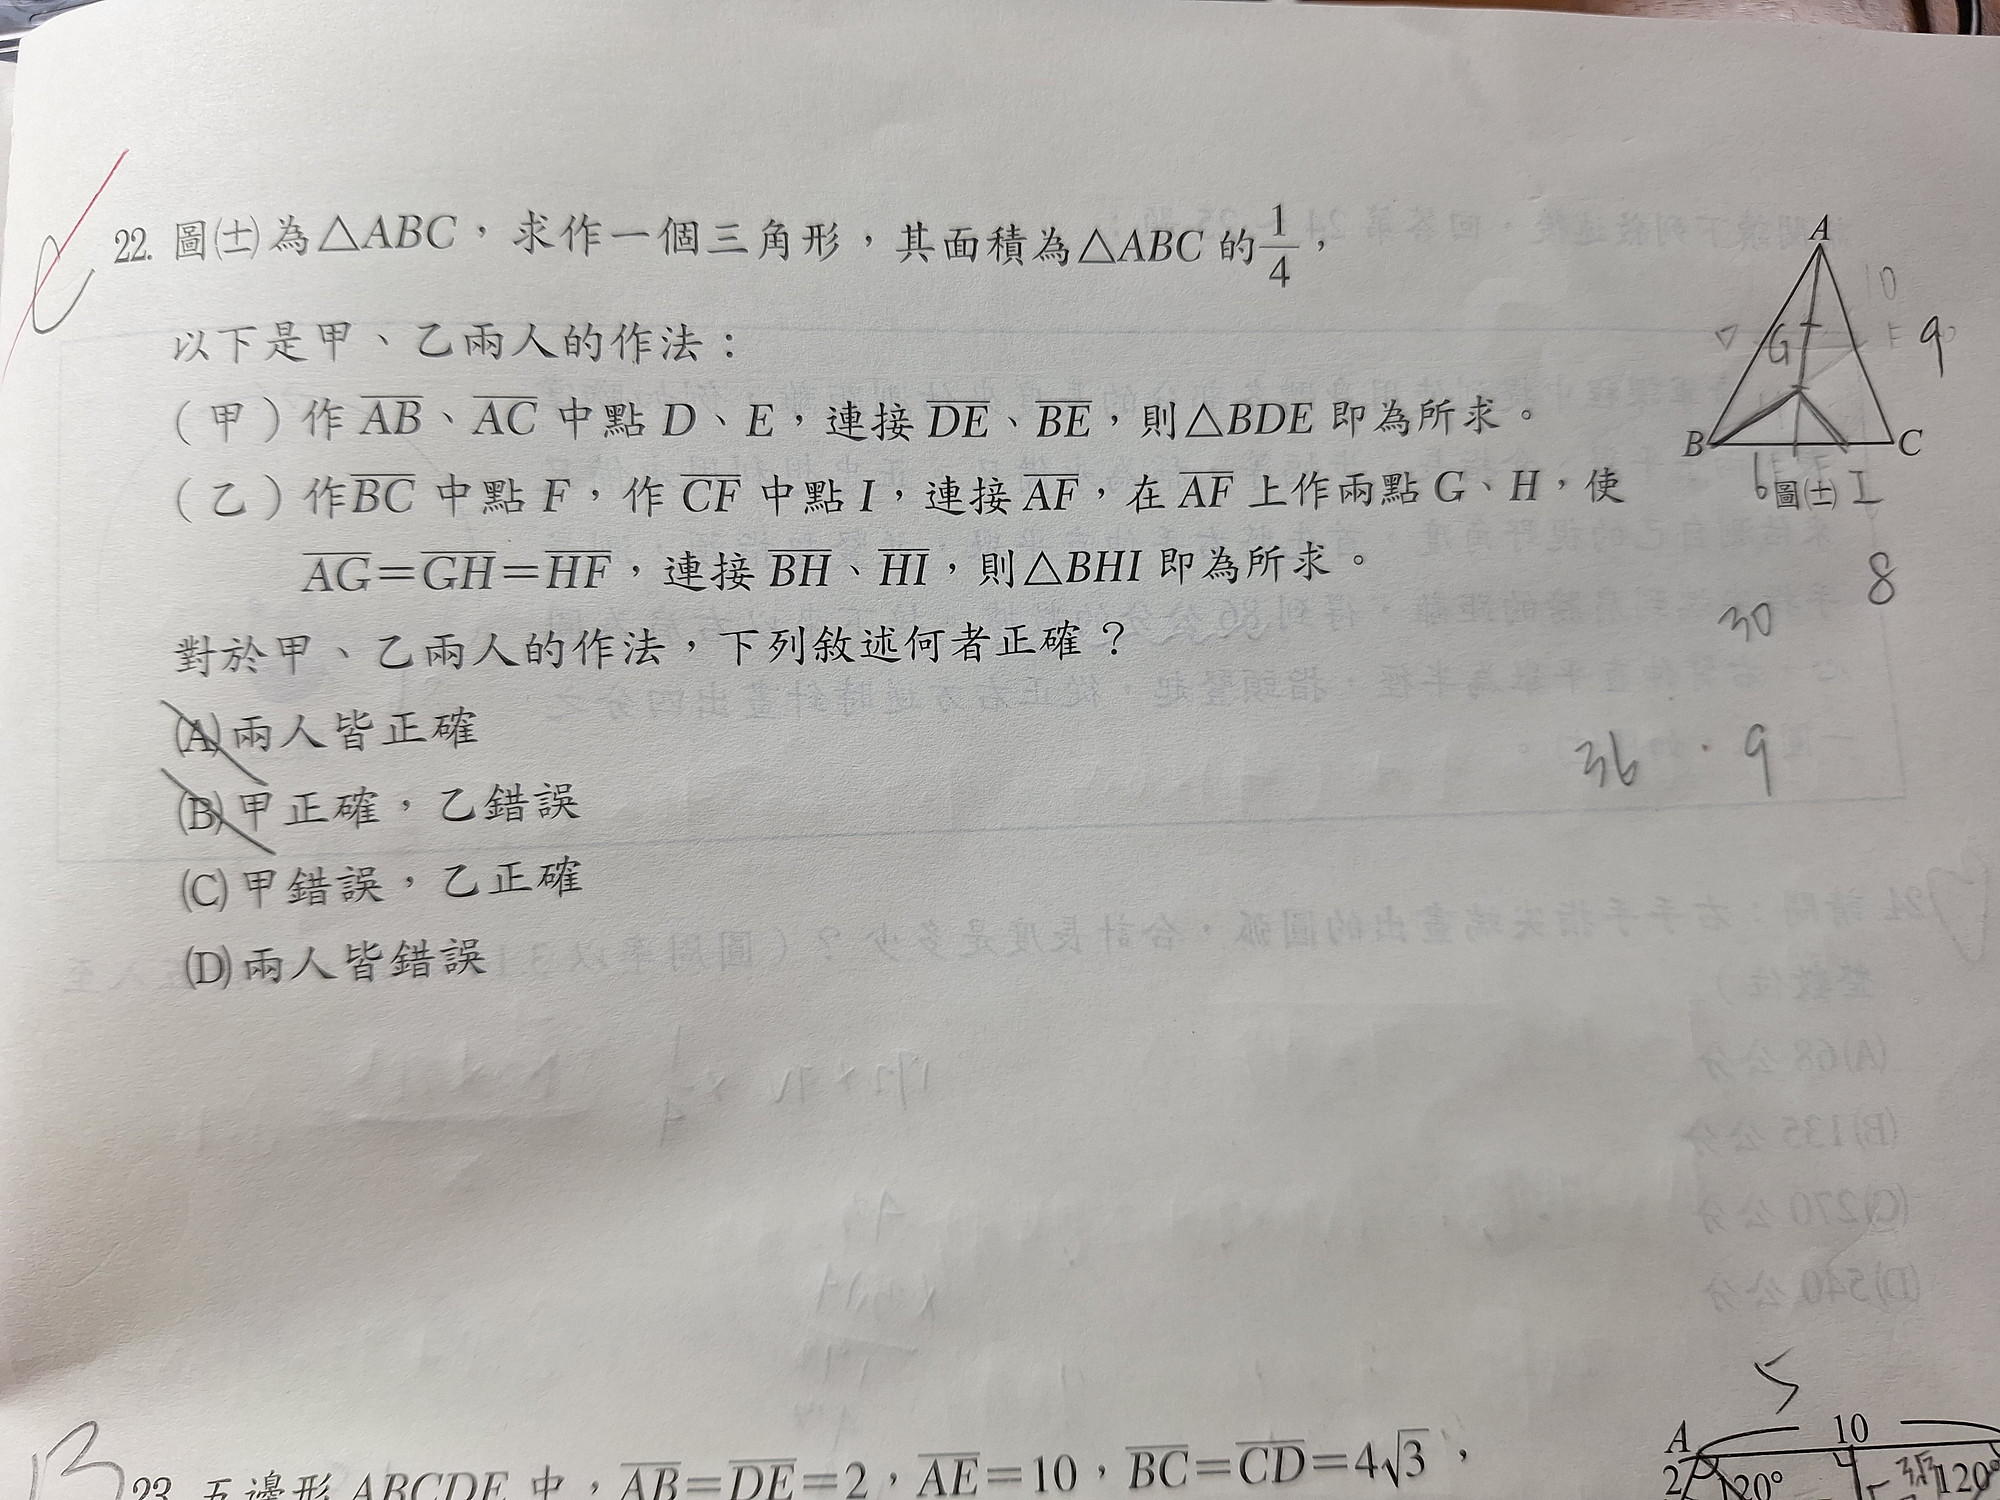 22. 圖(士)為△ABC，求作一個三角形，其面積為△ABC的1/4，
以下是甲、乙兩人的作法：
(甲)作AB、AC中點D、E，連接DE、BE，則△BDE即為所求。
(乙)作BC中點F，作CF中點I，連接AF，在AF上作兩點G、H，使
AG=GH=HF，連接BH、HI，則△BHI即為所求。
對於甲、乙兩人的作法，下列敘述何者正確？
(A)兩人皆正確
(B)甲正確，乙錯誤
(C)甲錯誤，乙正確
(D)兩人皆錯誤
A
10
G
9
B
C
6
圖(士)
I
8
30
36 · 9
5
23. 五邊形ABCDE中，AB=DE=2，AE=10，BC=CD=4√3，
A
10
2
120°
120°